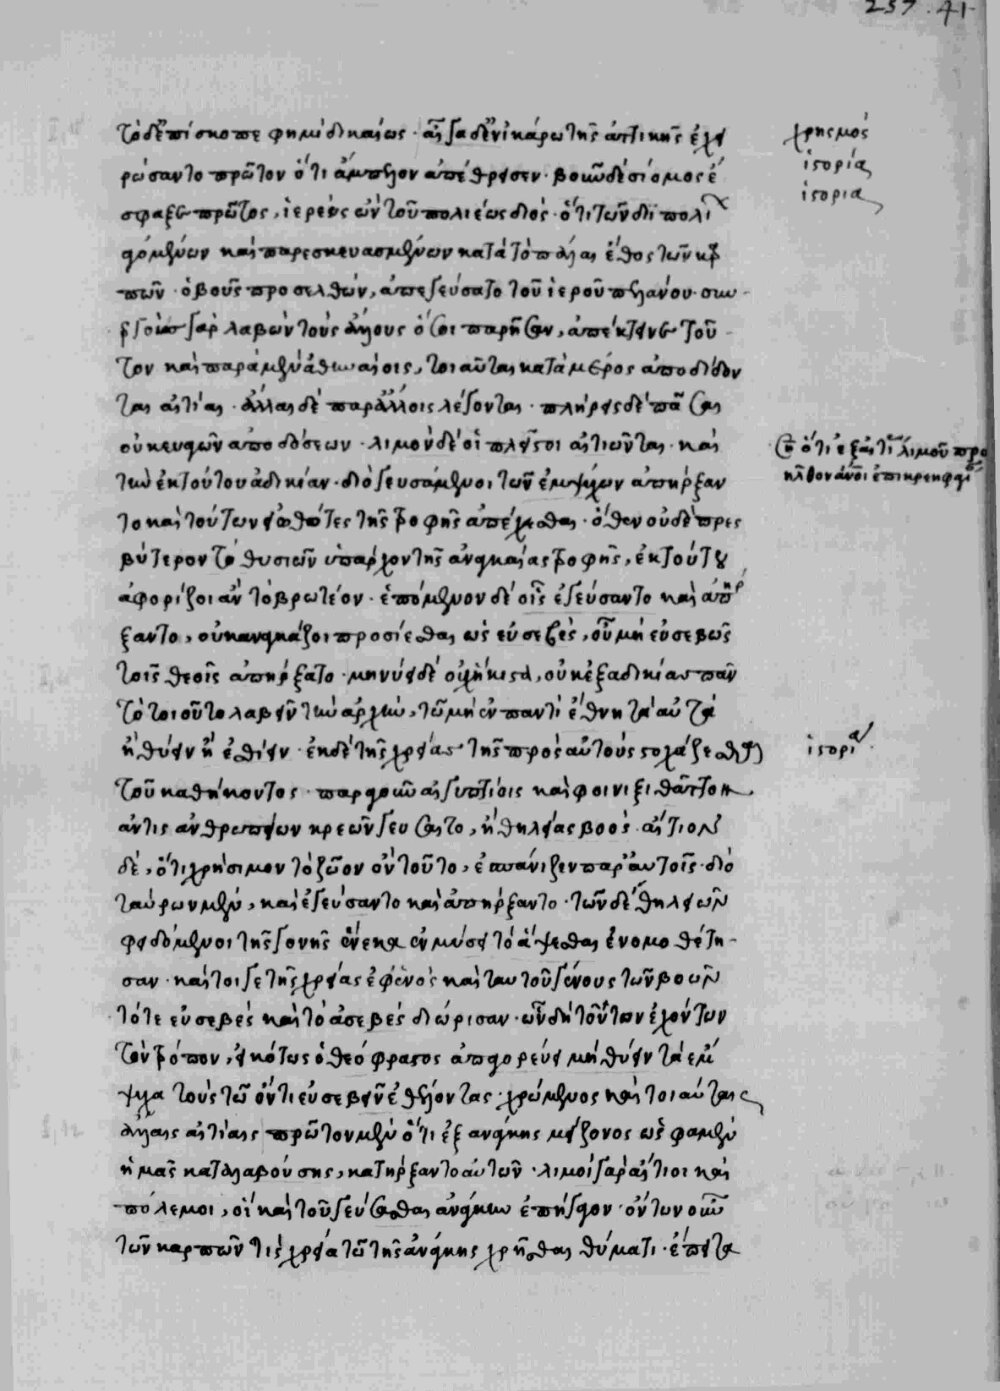 257. 41
τὸ δ' ἐπίσκοπε φημὶ δικαίως· αἶγα δ' ἐν ἰκάρω τῆς ἀττικῆς ἐχει
ρώσαντο πρῶτον ὅτι ἄμπελον ἀπέθρισεν· βοῦν δὲ δίομος ἔ
σφαξε πρῶτος, ἱερεὺς ὢν τοῦ πολιέως διός· ὅτι τῶν διιπολί
ων ἀγομένων καὶ παρεσκευασμένων κατὰ τὸ πάλαι ἔθος τῶν καρ
πῶν· ὁ βοῦς προσελθὼν, ἀπεγεύσατο τοῦ ἱεροῦ πελάνου· συν
εργοὺς γὰρ λαβὼν τοὺς ἄλλους ὅσοι παρῆσαν, ἀπέκτεινε τοῦ
τον καὶ παρὰ μὲν ἀθηναίοις, τοιαῦται κατὰ μέρος ἀποδίδον
ται αἰτίαι· ἄλλαι δὲ παρ' ἄλλοις λέγονται· πλήρεις δὲ πᾶσαι
οὐκ εὐαγῶν ἀποδόσεων· λιμὸν δὲ οἱ πλεῖστοι αἰτιῶνται· καὶ
τὴν ἐκ τούτου ἀδικίαν· διὸ γευσάμενοι τῶν ἐμψύχων ἀπήρξαν
το καὶ τούτων εἰωθότες τῆς τροφῆς ἀπέχεσθαι· ὅθεν οὐδὲ πρες
βύτερον τῶν θυσιῶν ὑπάρχον τῆς ἀναγκαίας τροφῆς, ἐκ τούτου
ἀφορίζοι ἂν τὸ βρωτέον· ἑπόμενον δὲ οἷς ἐγεύσαντο καὶ ἀπήρ
ξαντο, οὐκ ἀναγκάζοι προσίεσθαι ὡς εὐσεβὲς, οὗ μὴ εὐσεβῶς
τοῖς θεοῖς ἀπήρξατο· μηνύει δὲ οὐχ ἥκιστα, οὐκ ἐξ ἀδικίας πᾶν
τὸ τοιοῦτο λαβεῖν τὴν ἀρχὴν, τῶ μὴ ἐν παντὶ ἔθνη τὰ αὐτὰ
ἢ θύειν ἢ ἐσθίειν· ἐκ δὲ τῆς χρείας τῆς πρὸς αὐτοὺς στοχάζεσθαι
τοῦ καθήκοντος· παρὰ γοῦν αἰγυπτίοις καὶ φοίνιξι θᾶττον
ἄν τις ἀνθρωπείων κρεῶν γεύσαιτο, ἢ θηλείας βοός· αἴτιον
δὲ, ὅτι χρήσιμον τὸ ζῶον ὂν τοῦτο, ἐσπάνιζεν παρ' αὐτοῖς· διὸ
ταύρων μὲν, καὶ ἐγεύσαντο καὶ ἀπήρξαντο· τῶν δὲ θηλειῶν
φειδόμενοι τῆς γονῆς ἕνεκα ἐν μύσει τὸ ἅψασθαι ἐνομοθέτη
σαν· καίτοι γε τῆς χρείας ἐφ' ἑνὸς καὶ ταυτοῦ γένους τῶν βοῶν
τό τε εὐσεβὲς καὶ τὸ ἀσεβὲς διώρισαν· ὧν δὴ τοῦτον ἐχόντων
τὸν τρόπον, εἰκότως ὁ θεόφραστος ἀπαγορεύει μὴ θύειν τὰ ἔμ
ψυχα τοὺς τῶ ὄντι εὐσεβεῖν ἐθέλοντας· χρώμενος καὶ τοιαύταις
ἄλλαις αἰτίαις πρῶτον μὲν ὅτι ἐξ ἀνάγκης μείζονος ὡς φαμὲν
ἡμᾶς καταλαβούσης, κατήρξαντο αὐτῶν· λιμοὶ γὰρ αἴτιοι καὶ
πόλεμοι, οἳ καὶ τοῦ γεύσασθαι ἀνάγκην ἐπήγαγον· ὄντων οὖν
τῶν καρπῶν τίς χρεία τῶ τῆς ἀνάγκης χρῆσθαι θύματι· ἔπειτα
χρησμός
ἱστορία
ἱστορια
ση ὅτι ἐξ αἰτίας λιμοῦ προ
ῆλθον ἄνθρωποι ἐπὶ κρεηφαγίαν
ἱστορία